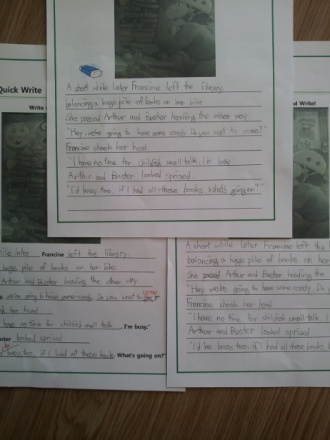 A short while later Francine left the library,
balancing a huge pile of books on her bike
She passed Arthur and Buster heading the other way
"Hey, we're going to have some candy. Do you want to come?"
Francine shook her head
"I have no time for childish small talk. I'm busy
Arthur and Buster looked sprised
"I'd busy, too, if I had all these books. What's going on?"
Quick Write
Write
while later Francine left the library,
huge pile of books on her bike
Arthur and Buster heading the other way
we're going to have some candy. Do you want to
her head
have no time for childish small talk, I'm busy."
looked sprised
busy, too, if I had all these books. What's going on?"
nd Write!
A short while later Francine left the
balancing a huge pile of books on her
She passed Arthur and Buster heading the
"Hey, we're going to have some candy. Do
Francine shook her head
"I have no time for childish small talk. I
Arthur and Buster looked sprised
"I'd be busy, too, if I had all these books, wh